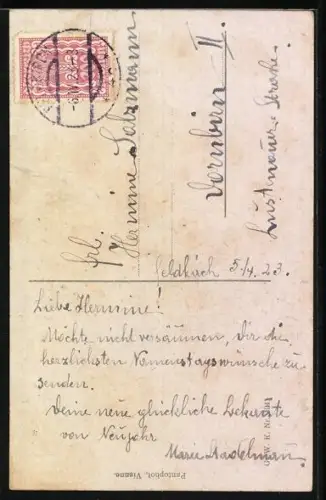 Frl.
Hermine Salzmann
Dornbirn II.
Lustenauer-Strasse.
Feldkirch 5./4. 23.
Liebe Hermine!
Möchte nicht versäumen, Dir die
herzlichsten Namenstagswünsche zu
senden.
Deine neue glückliche Bekannte
von Neujahr
Marie Stadelmann
Pentophot, Vienne.